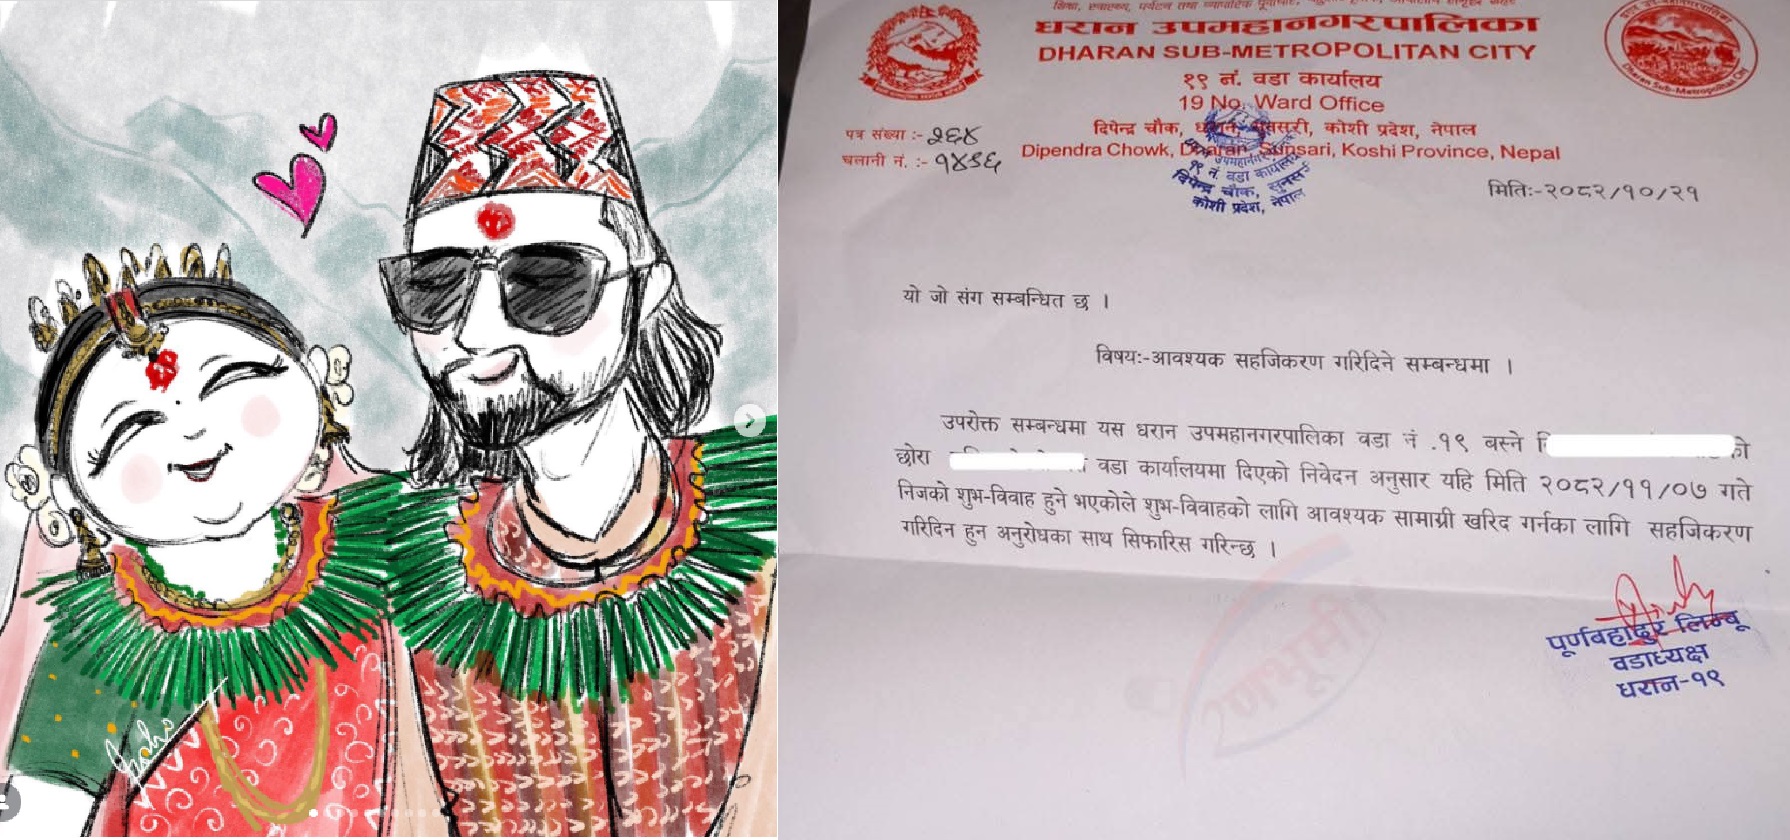 धरान उपमहानगरपालिका
DHARAN SUB-METROPOLITAN CITY
१९ नं. वडा कार्यालय
19 No. Ward Office
दिपेन्द्र चौक, धरान, सुनसरी, कोशी प्रदेश, नेपाल
Dipendra Chowk, Dharan, Sunsari, Koshi Province, Nepal
पत्र संख्या :-
चलानी नं. :-
मिति:-२०८२/१०/२१
१९ नं. वडा कार्यालय
दिपेन्द्र चौक, सुनसरी
कोशी प्रदेश, नेपाल
यो जो संग सम्बन्धित छ ।
विषय:-आवश्यक सहजिकरण गरिदिने सम्बन्धमा ।
उपरोक्त सम्बन्धमा यस धरान उपमहानगरपालिका वडा नं .१९ बस्ने को
छोरा वडा कार्यालयमा दिएको निवेदन अनुसार यहि मिति २०८२/११/०७ गते
निजको शुभ-विवाह हुने भएकोले शुभ-विवाहको लागि आवश्यक सामाग्री खरिद गर्नका लागि सहजिकरण
गरिदिन हुन अनुरोधका साथ सिफारिस गरिन्छ ।
पूर्णबहादुर लिम्बू
वडाध्यक्ष
धरान-१९
रणभूमी